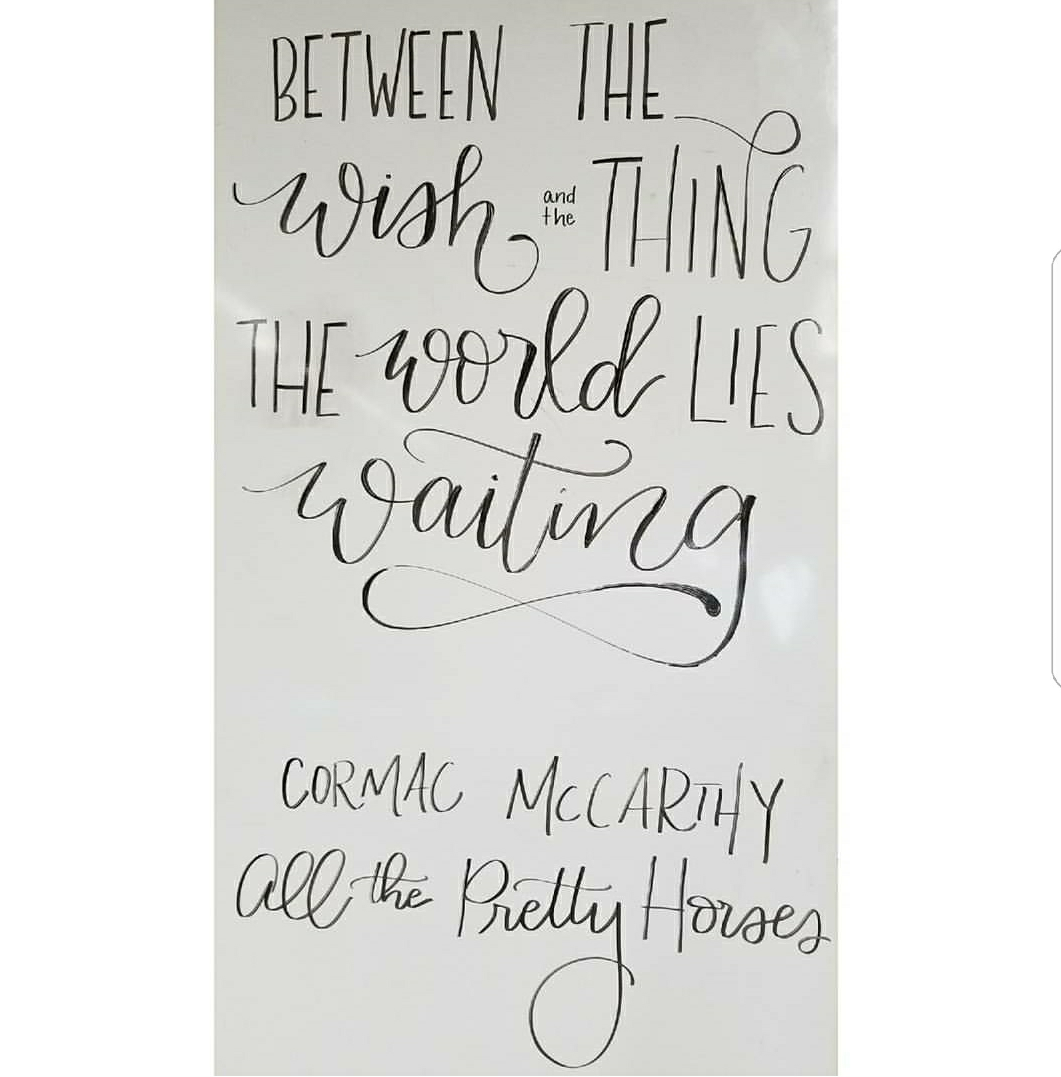 BETWEEN THE
wish and the THING
THE world LIES
waiting
CORMAC McCARTHY
All the Pretty Horses